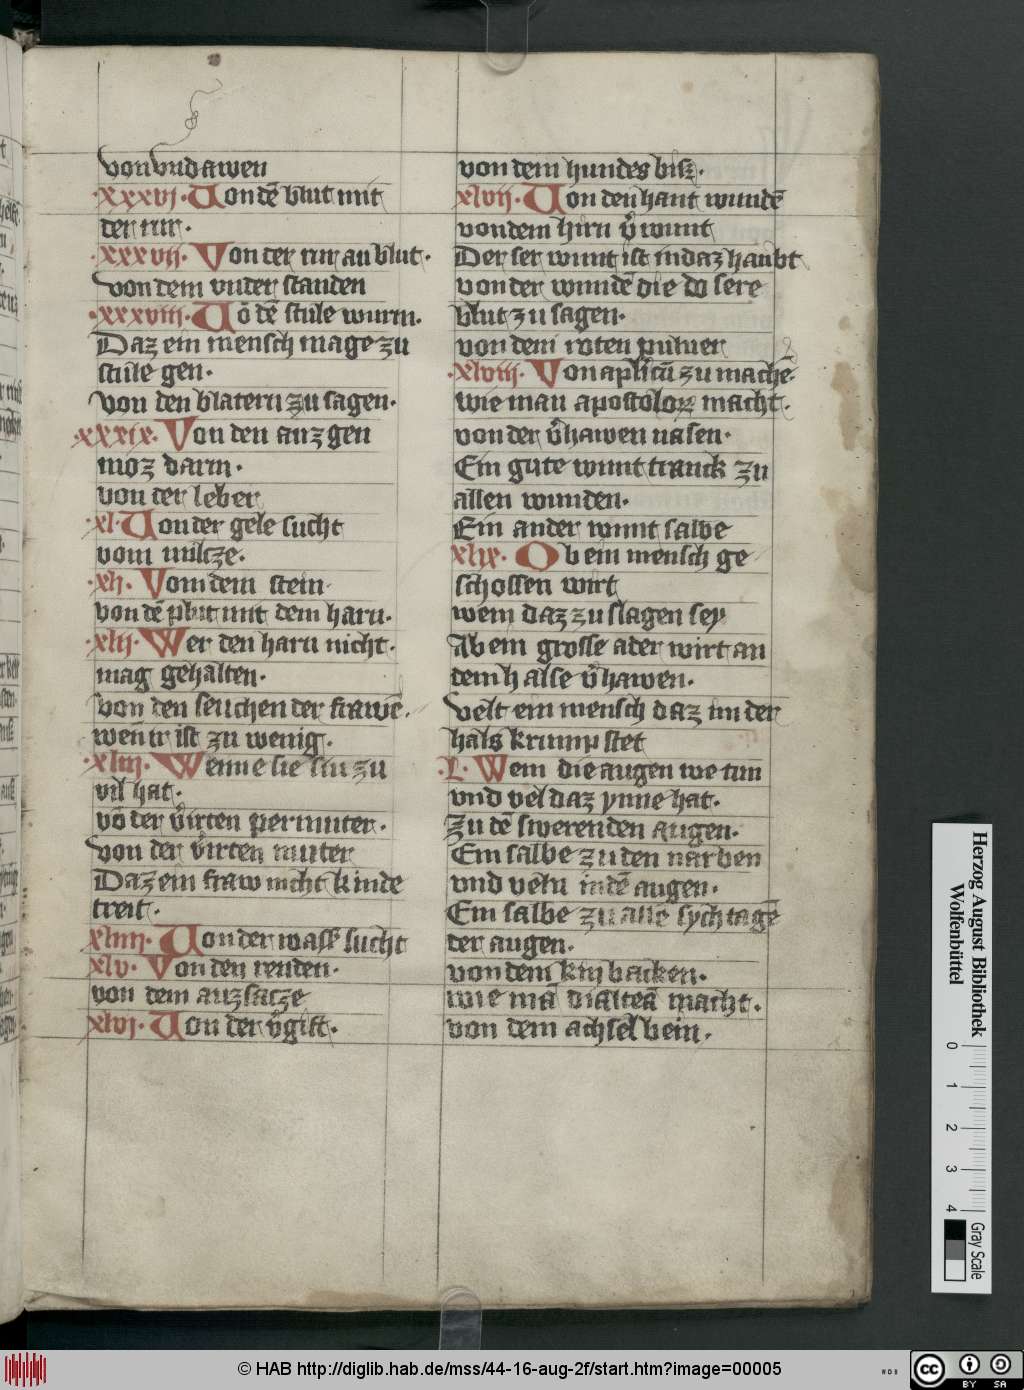 von vnd awen
·xxxvj· Uon dē blut mit
der rur·
·xxxvij· Von der rur an blut·
von dem vnder standen
·xxxviij· Uō dē stule wurm·
Daz ein mensch mage zu
stule gen·
von den blatern zu sagen·
xxxix· Von den auz gen
moz darm·
von der leber
·xl· Uon der gele sucht
vom milcze·
·xli· Vom dem stein·
von dē plut mit dem harn·
·xlij· Wer den harn nicht·
mag gehalten·
von den seuchen der frawē·
wen̄ ir ist zu wenig·
·xliij· Wenne sie sin zu
vil hat·
vō der v̓irten permuter·
von der v̓irten muter
Daz ein fraw nicht kinde
treit·
xliiij· Uon der wass sucht
xlv· Von den renden·
von dem auzsacze
xlvj· Uon der v̓gift·
von dem hundes bisz·
xlvij· Uon den haut wundē
von dem hirn v̓wunt
Der ser wunt ist in daz haubt
von der wundē die do sere
blut zu sagen·
von dem roten puluer
·xlviij· Von aplicū zu machē·
wie man apostolorz macht·
von der v̓hawen nasen·
Ein gute wunt tranck zu
allen wunden·
Ein ander wunt salbe
xlix· Ob ein mensch ge
schossen wirt
wem daz zu slagen sey
Ab ein grosse ader wirt an
dem halse v̓hawen·
velt ein mensch daz im der
hals krump stet
·L· Wem die augen we tun
vnd vel daz ynne hat·
Zu dē swerenden augen·
Ein salbe zu den narben
vnd veln in dē augen·
Ein salbe zu alle sychtagē
der augen·
von dem kinbacken·
wie mā dialteā macht·
von dem achsel bein·
Herzog August Bibliothek
Wolfenbüttel
0 1 2 3 4
Gray Scale
© HAB http://diglib.hab.de/mss/44-16-aug-2f/start.htm?image=00005
cc BY SA